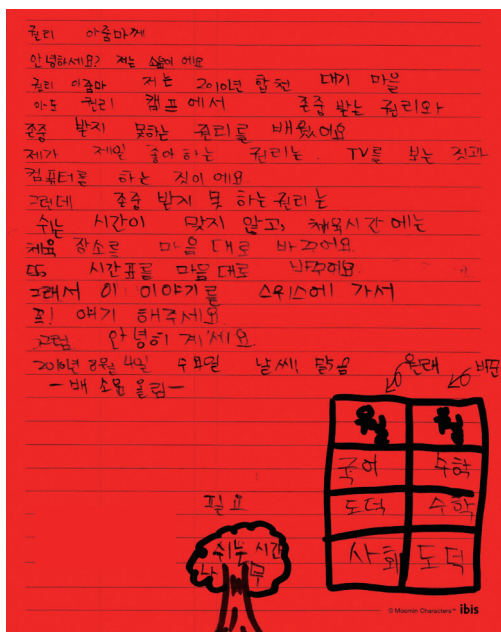 권리 아줌마께
안녕하세요? 저는 소윤이 에요
권리 아줌마 저는 2010년 합천 대기 마을
아동 권리 캠프에서 존중 받는 권리와
존중 받지 못하는 권리를 배웠어요
제가 제일 좋아하는 권리는. TV를 보는 것과
컴퓨터를 하는 것이에요
그런데 존중 받지 못 하는 권리는
쉬는 시간이 맞지 않고, 체육시간 에는
체육 장소로 마음 대로 바꾸어요.
또 시간표를 마음대로 바꾸어요.
그래서 이 이야기를 스위스에 가서
꼭! 얘기 해주세요.
그럼 안녕히 계세요.
2010년 8월 4일 수요일 날씨: 맑음
-배 소윤 올림-
원래 바뀐
월 월
국어 수학
도덕 수학
사회 도덕
필요
쉬는 시간
나 무
© Moomin Characters™ ibis